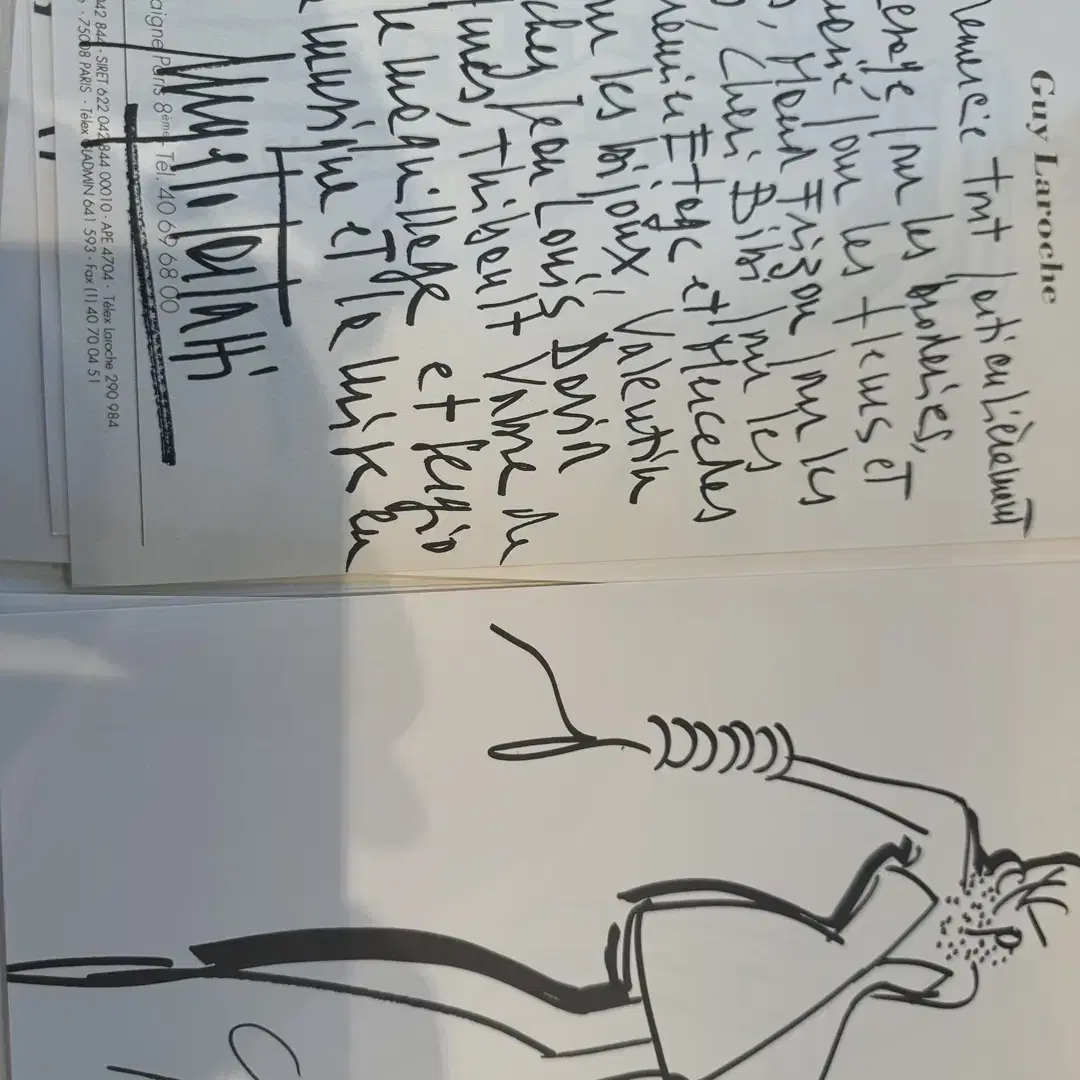 Guy Laroche
emercie tout particulièrement
esage, pour les broderies,
pour les fleurs et
, Maud Frizon pour les
, Cheri Bibi pour les
et Mercedes
pour les bijoux, Valentin
Jean Louis David
, Thibault Vabre de
le maquillage et Sergio
musique et le mix en
Angelo Tarlazzi
aigne Paris 8ème - Tél. 40 69 68 00
042 844 - SIRET 622 042 844 00010 - APE 4704 - Télex Laroche 290 984
- 75008 PARIS - Télex ADMIN 641 593 - Fax (1) 40 70 04 51